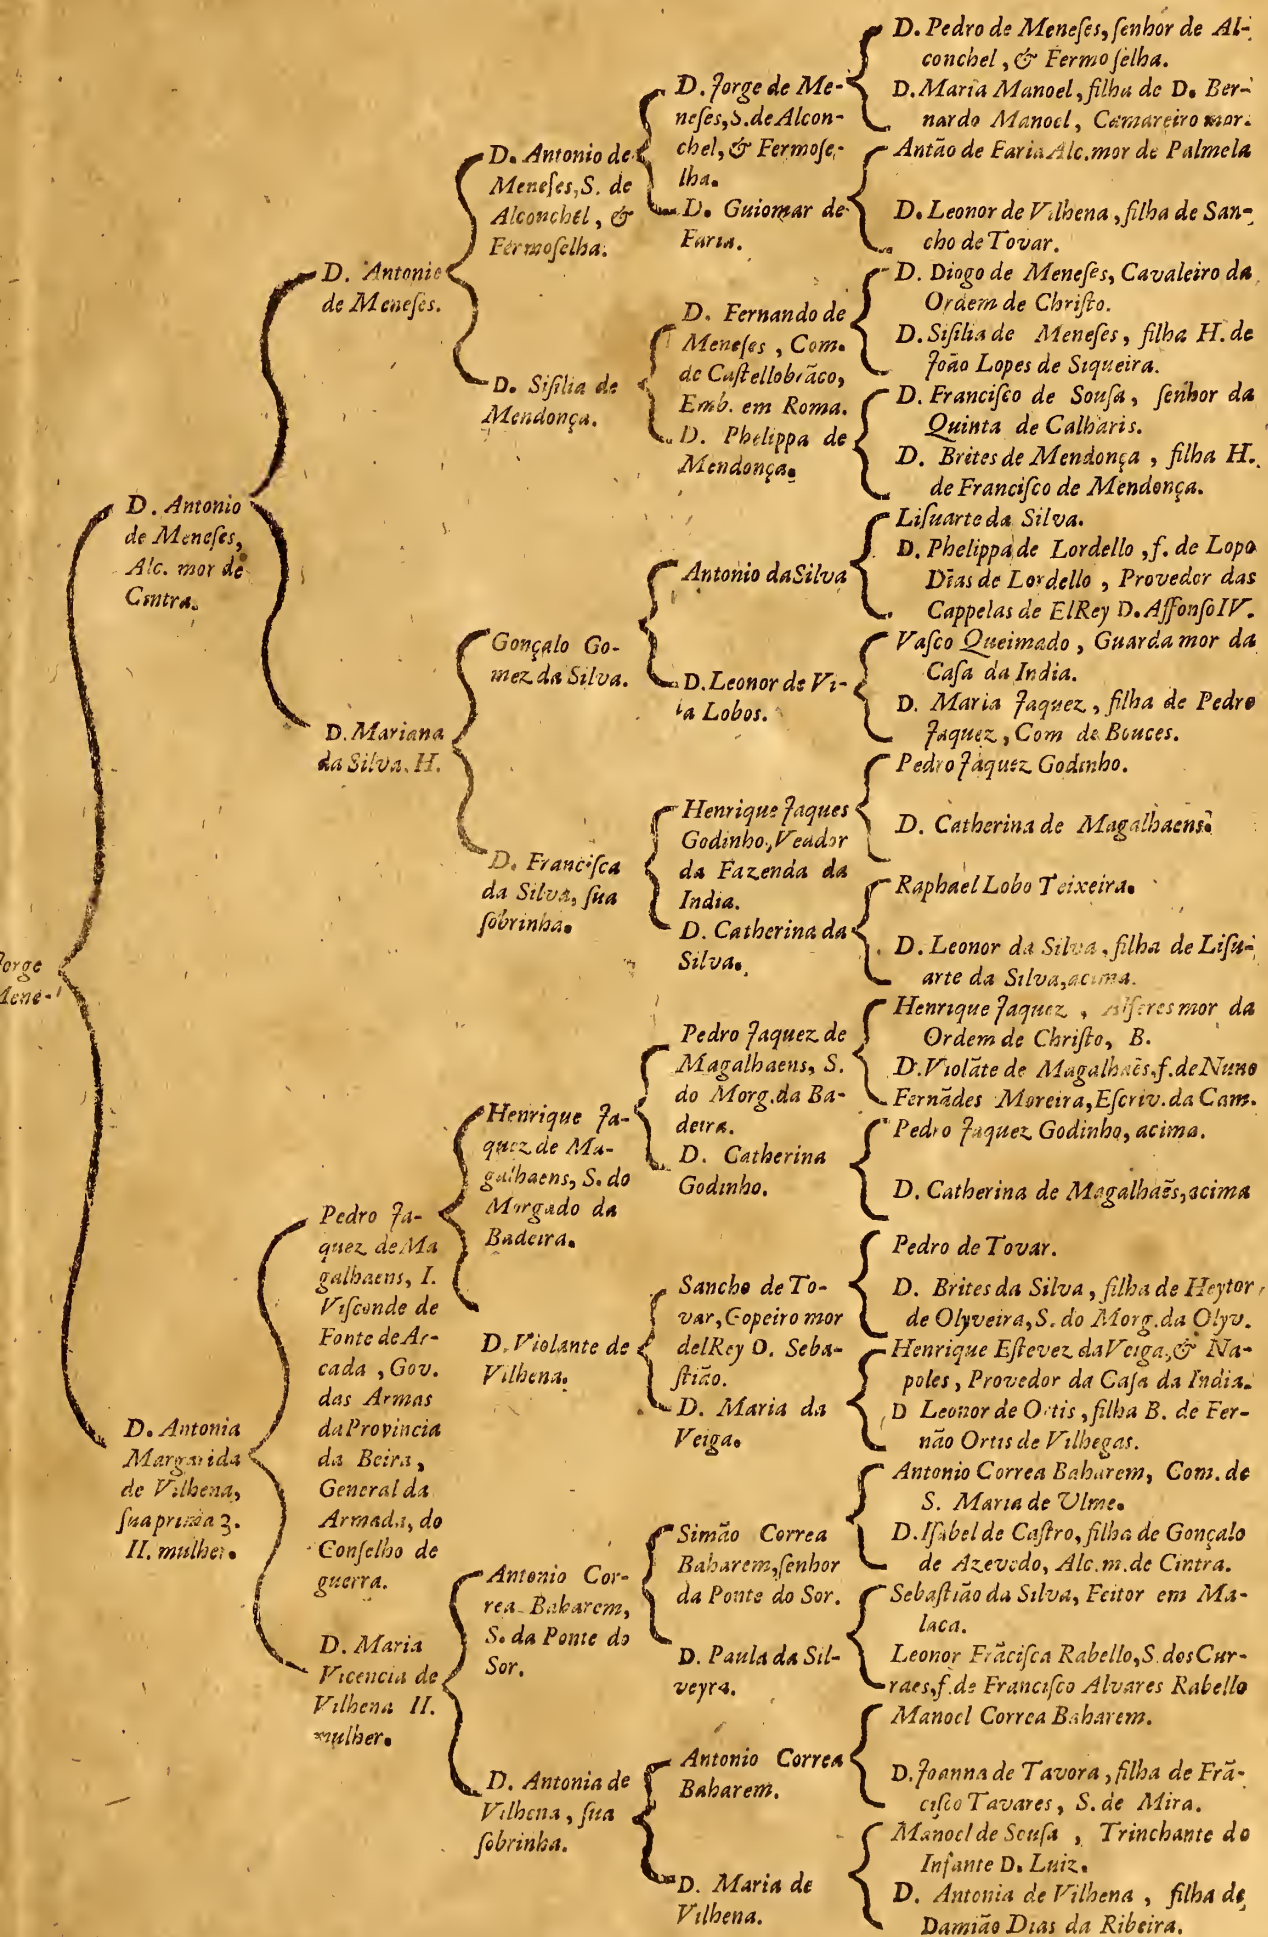 Jorge
Mene-
D. Antonio
de Meneſes,
Alc. mor de
Cintra.
D. Antonia
Margarida
de Vilhena,
ſua prima 3.
II. mulher.
D. Antonio
de Meneſes.
D. Mariana
da Silva. H.
Pedro Ja-
quez de Ma
galhaens, I.
Viſconde de
Fonte de Ar-
cada, Gov.
das Armas
da Provincia
da Beira,
General da
Armada, do
Conſelho de
guerra.
D. Maria
Vicencia de
Vilhena II.
mulher.
D. Antonio de
Meneſes, S. de
Alconchel, &
Fermoſelha.
D. Siſilia de
Mendonça.
Gonçalo Go-
mez da Silva.
D. Franciſca
da Silva, ſua
ſobrinha.
Henrique Ja-
quez de Ma-
galhaens, S. do
Morgado da
Badeira.
D. Violante de
Vilhena.
Antonio Cor-
rea Baharem,
S. da Ponte do
Sor.
D. Antonia de
Vilhena, ſua
ſobrinha.
D. Jorge de Me-
neſes, S. de Alcon-
chel, & Fermoſe-
lha.
D. Guiomar de
Faria.
D. Fernando de
Meneſes, Com.
de Caſtellobrãco,
Emb. em Roma.
D. Phelippa de
Mendonça.
Antonio da Silva
D. Leonor de Vi-
la Lobos.
Henrique Jaques
Godinho, Veador
da Fazenda da
India.
D. Catherina da
Silva.
Pedro Jaquez de
Magalhaens, S.
do Morg. da Ba-
deira.
D. Catherina
Godinho.
Sancho de To-
var, Copeiro mor
delRey D. Seba-
ſtião.
D. Maria da
Veiga.
Simão Correa
Baharem, ſenhor
da Ponte do Sor.
D. Paula da Sil-
veyra.
Antonio Correa
Baharem.
D. Maria de
Vilhena.
D. Pedro de Meneſes, ſenhor de Al-
conchel, & Fermoſelha.
D. Maria Manoel, filha de D. Ber-
nardo Manoel, Camareiro mor.
Antão de Faria Alc. mor de Palmela
D. Leonor de Vilhena, filha de San-
cho de Tovar.
D. Diogo de Meneſes, Cavaleiro da
Ordem de Chriſto.
D. Siſilia de Meneſes, filha H. de
João Lopes de Siqueira.
D. Franciſco de Souſa, ſenhor da
Quinta de Calharis.
D. Brites de Mendonça, filha H.
de Franciſco de Mendonça.
Liſuarte da Silva.
D. Phelippa de Lordello, f. de Lopo
Dias de Lordello, Provedor das
Cappelas de ElRey D. Affonſo IV.
Vaſco Queimado, Guarda mor da
Caſa da India.
D. Maria Jaquez, filha de Pedro
Jaquez, Com de Bouces.
Pedro Jaquez Godinho.
D. Catherina de Magalhaens.
Raphael Lobo Teixeira.
D. Leonor da Silva, filha de Liſu-
arte da Silva, acima.
Henrique Jaquez, Alferes mor da
Ordem de Chriſto, B.
D. Violãte de Magalhaẽs, f. de Nuno
Fernãdes Moreira, Eſcriv. da Cam.
Pedro Jaquez Godinho, acima.
D. Catherina de Magalhaẽs, acima
Pedro de Tovar.
D. Brites da Silva, filha de Heytor
de Olyveira, S. do Morg. da Olyv.
Henrique Eſtevez da Veiga, & Na-
poles, Provedor da Caſa da India.
D Leonor de Ortis, filha B. de Fer-
não Ortis de Vilhegas.
Antonio Correa Baharem, Com. de
S. Maria de Ulme.
D. Iſabel de Caſtro, filha de Gonçalo
de Azevedo, Alc. m. de Cintra.
Sebaſtião da Silva, Feitor em Ma-
laca.
Leonor Frãciſca Rabello, S. dos Cur-
raes, f. de Franciſco Alvares Rabello
Manoel Correa Baharem.
D. Joanna de Tavora, filha de Frã-
ciſco Tavares, S. de Mira.
Manoel de Souſa, Trinchante do
Infante D. Luiz.
D. Antonia de Vilhena, filha de
Damião Dias da Ribeira.